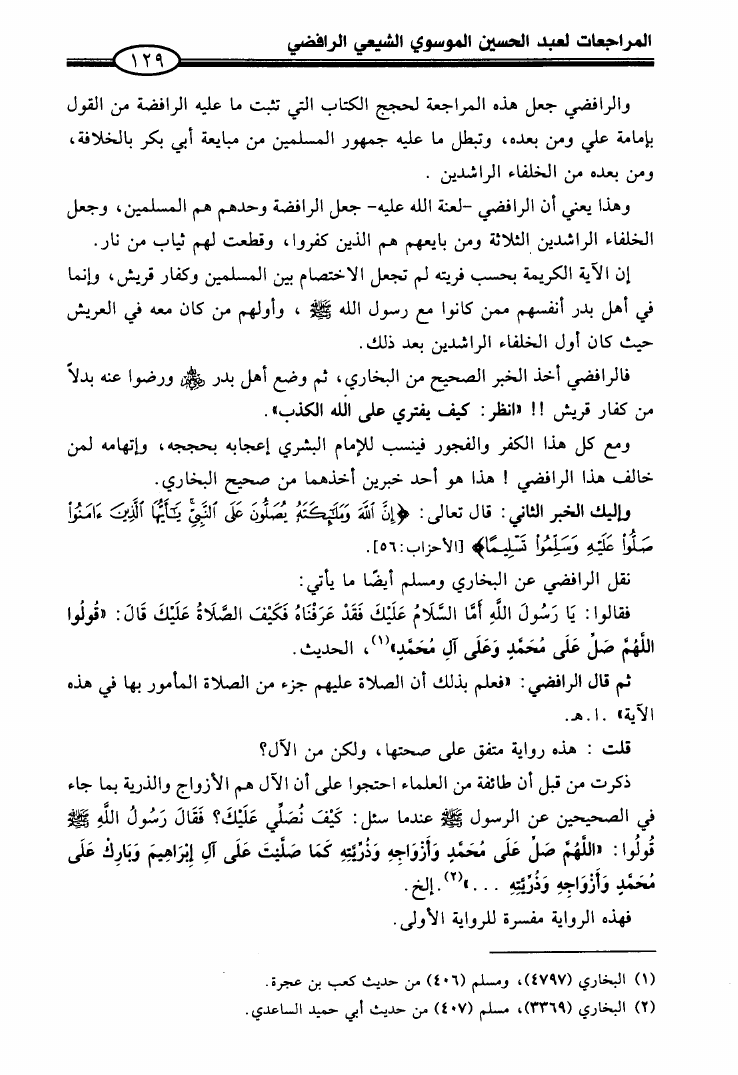 المراجعات لعبد الحسين الموسوي الشيعي الرافضي
١٢٩
والرافضي جعل هذه المراجعة لحجج الكتاب التي تثبت ما عليه الرافضة من القول
بإمامة علي ومن بعده، وتبطل ما عليه جمهور المسلمين من مبايعة أبي بكر بالخلافة،
ومن بعده من الخلفاء الراشدين .
وهذا يعني أن الرافضي -لعنة الله عليه- جعل الرافضة وحدهم هم المسلمين، وجعل
الخلفاء الراشدين الثلاثة ومن بايعهم هم الذين كفروا، وقطعت لهم ثياب من نار.
إن الآية الكريمة بحسب فريته لم تجعل الاختصام بين المسلمين وكفار قريش، وإنما
في أهل بدر أنفسهم ممن كانوا مع رسول الله ﷺ ، وأولهم من كان معه في العريش
حيث كان أول الخلفاء الراشدين بعد ذلك.
فالرافضي أخذ الخبر الصحيح من البخاري، ثم وضع أهل بدر ﵃ ورضوا عنه بدلاً
من كفار قريش !! «انظر: كيف يفتري على الله الكذب».
ومع كل هذا الكفر والفجور فينسب للإمام البشري إعجابه بحججه، وإتهامه لمن
خالف هذا الرافضي ! هذا هو أحد خبرين أخذهما من صحيح البخاري.
وإليك الخبر الثاني: قال تعالى: ﴿إِنَّ ٱللَّهَ وَمَلَٰٓئِكَتَهُۥ يُصَلُّونَ عَلَى ٱلنَّبِيِّۚ يَٰٓأَيُّهَا ٱلَّذِينَ ءَامَنُوا۟
صَلُّوا۟ عَلَيْهِ وَسَلِّمُوا۟ تَسْلِيمًا﴾ [الأحزاب:٥٦].
نقل الرافضي عن البخاري ومسلم أيضًا ما يأتي:
فقالوا: يَا رَسُولَ اللَّهِ أَمَّا السَّلَامُ عَلَيْكَ فَقَدْ عَرَفْنَاهُ فَكَيْفَ الصَّلَاةُ عَلَيْكَ قَالَ: «قُولُوا
اللَّهُمَّ صَلِّ عَلَى مُحَمَّدٍ وَعَلَى آلِ مُحَمَّدٍ»(١)، الحديث.
ثم قال الرافضي: «فعلم بذلك أن الصلاة عليهم جزء من الصلاة المأمور بها في هذه
الآية» .ا.هـ.
قلت : هذه رواية متفق على صحتها، ولكن من الآل؟
ذكرت من قبل أن طائفة من العلماء احتجوا على أن الآل هم الأزواج والذرية بما جاء
في الصحيحين عن الرسول ﷺ عندما سئل: كَيْفَ نُصَلِّي عَلَيْكَ؟ فَقَالَ رَسُولُ اللَّهِ ﷺ
قُولُوا: «اللَّهُمَّ صَلِّ عَلَى مُحَمَّدٍ وَأَزْوَاجِهِ وَذُرِّيَّتِهِ كَمَا صَلَّيْتَ عَلَى آلِ إِبْرَاهِيمَ وَبَارِكْ عَلَى
مُحَمَّدٍ وَأَزْوَاجِهِ وَذُرِّيَّتِهِ ...»(٢).إلخ.
فهذه الرواية مفسرة للرواية الأولى.
(١) البخاري (٤٧٩٧)، ومسلم (٤٠٦) من حديث كعب بن عجرة.
(٢) البخاري (٣٣٦٩)، مسلم (٤٠٧) من حديث أبي حميد الساعدي.